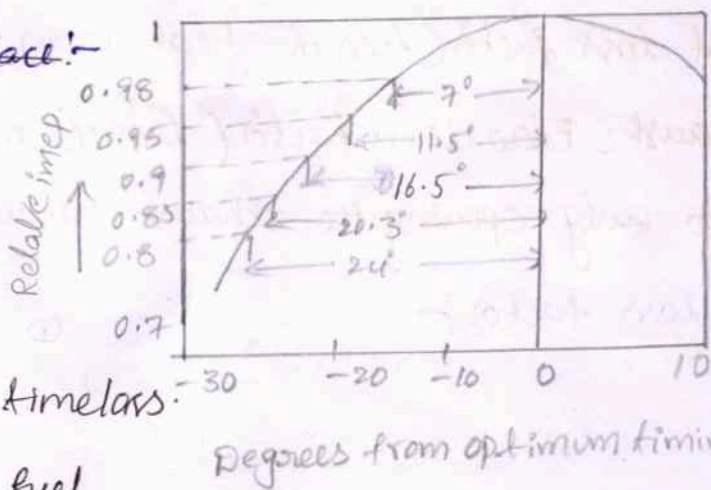 1
0.98
0.95
0.9
0.85
0.8
0.7
Relative imep
7°
11.5°
16.5°
20.3°
24°
-30 -20 -10 0 10
time loss.
Degrees from optimum timin
fuel